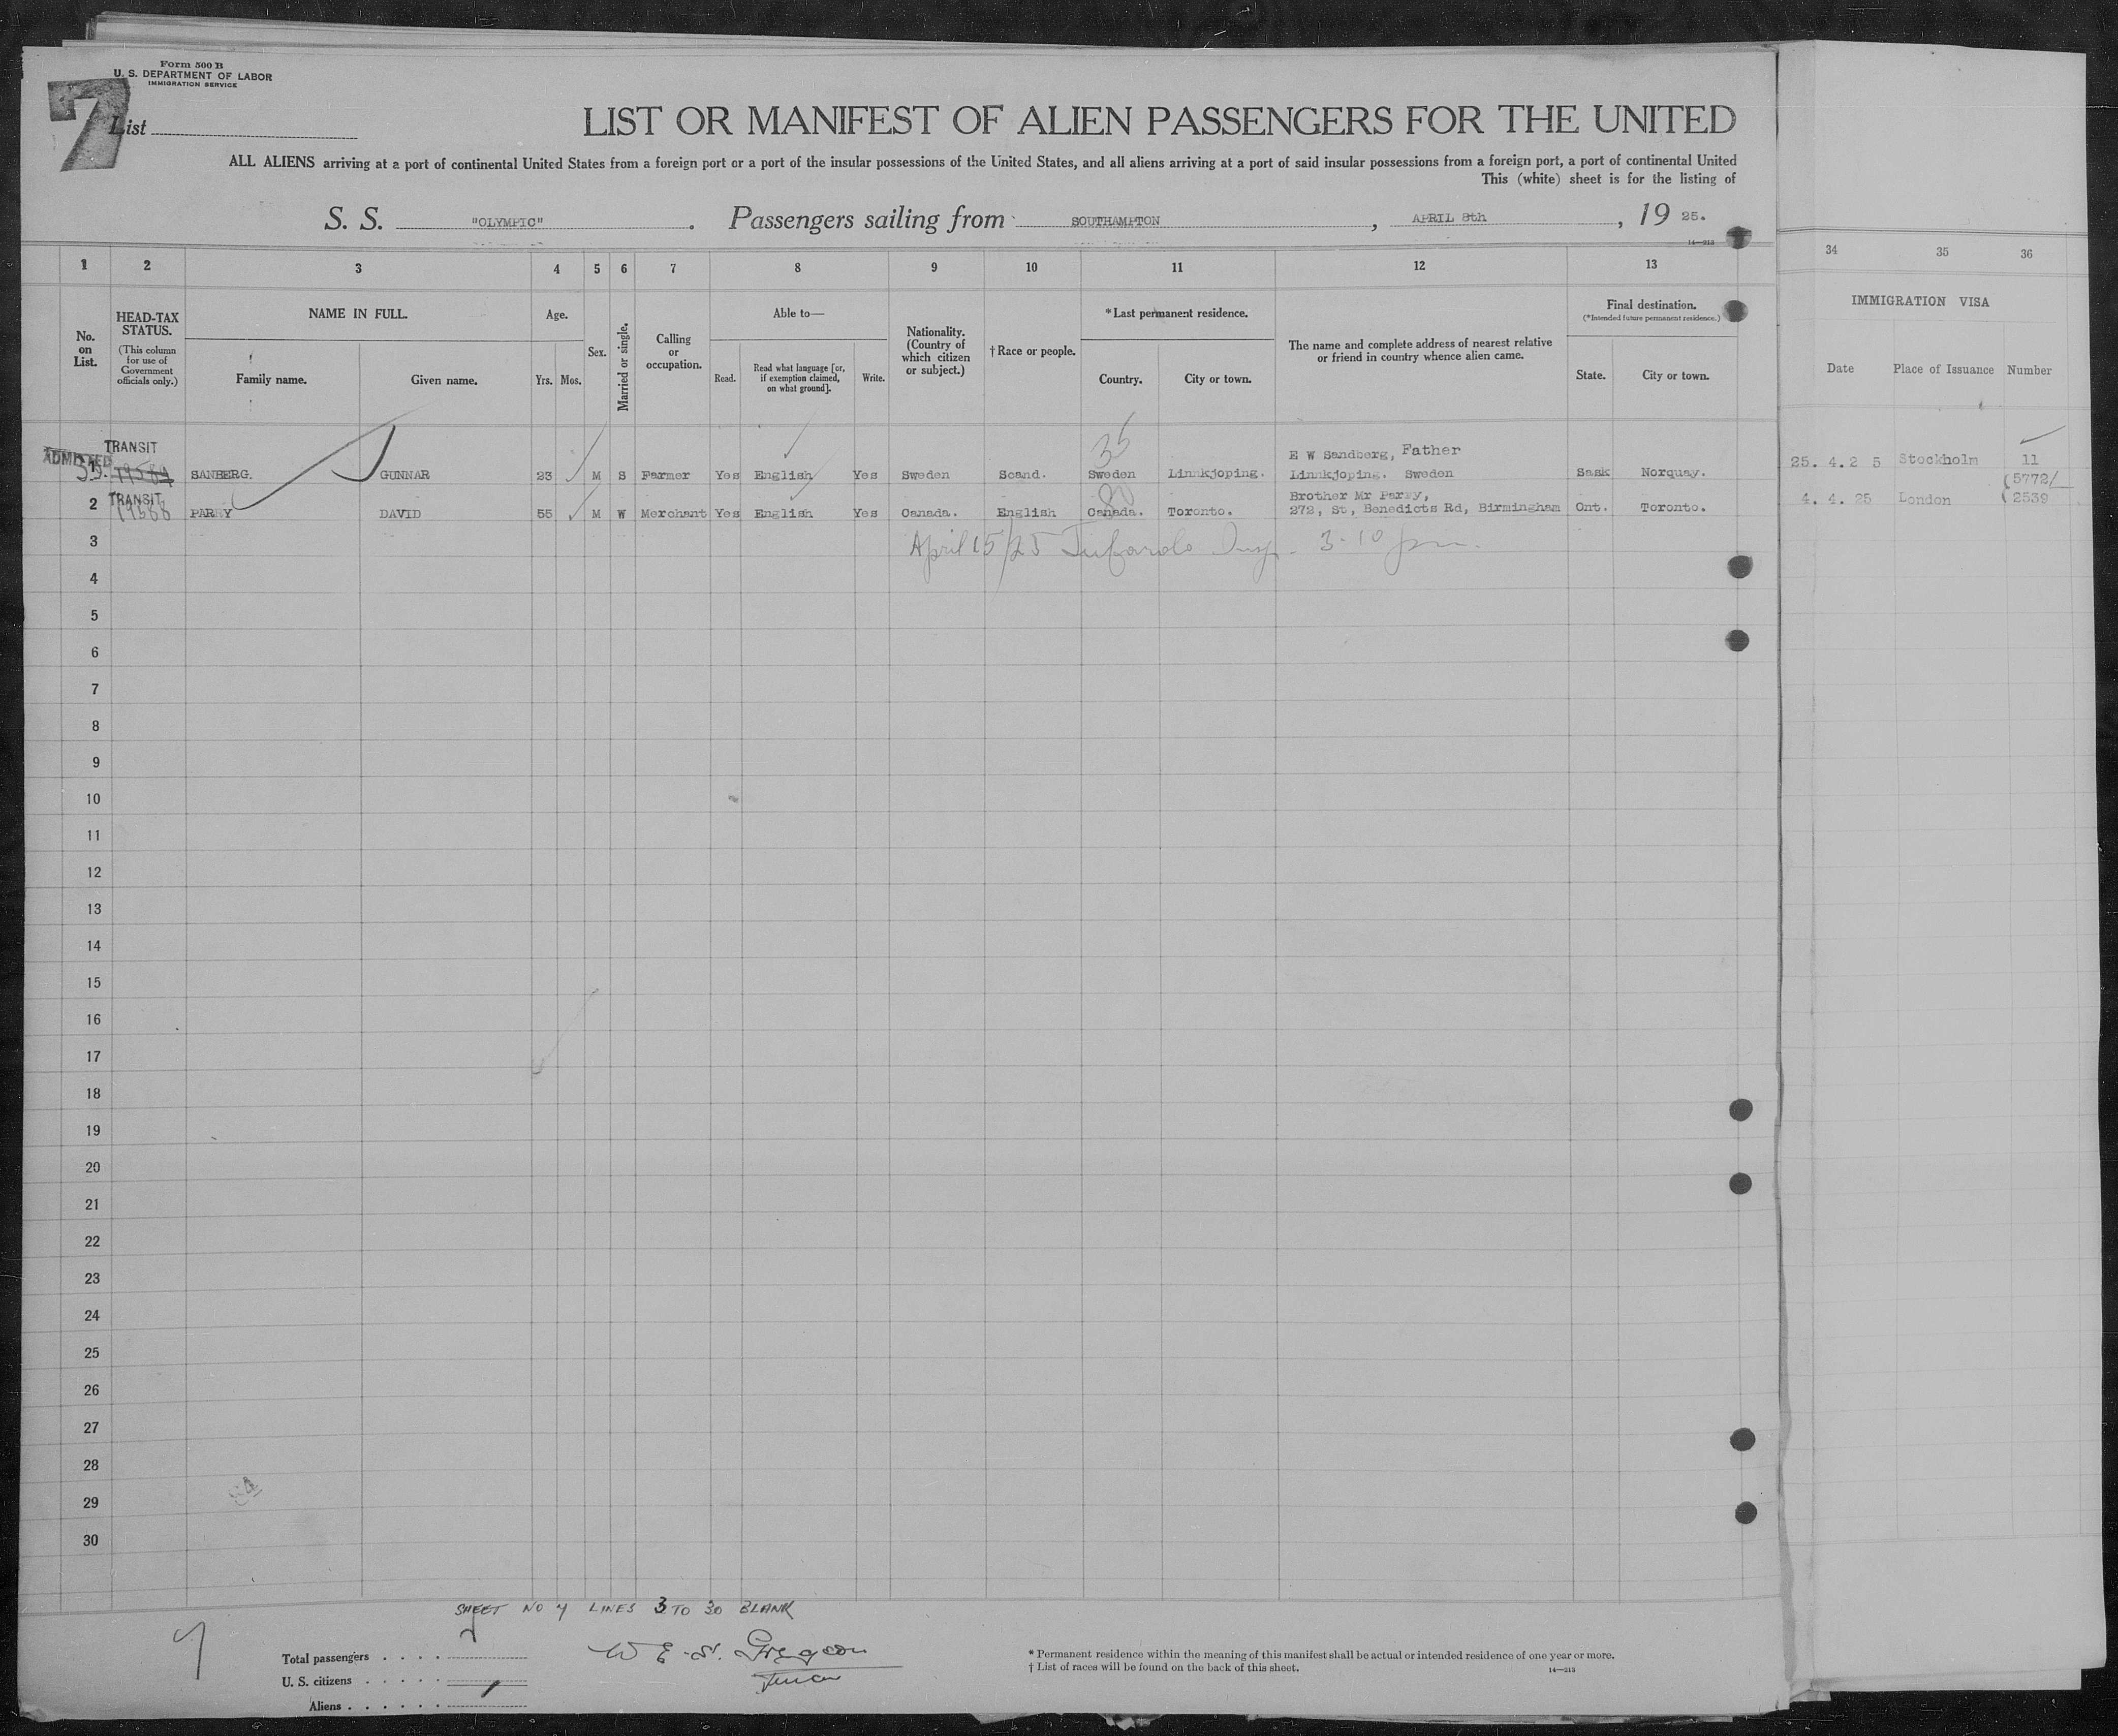 Form 500 B
U. S. DEPARTMENT OF LABOR
IMMIGRATION SERVICE
7
List
LIST OR MANIFEST OF ALIEN PASSENGERS FOR THE UNITED
ALL ALIENS arriving at a port of continental United States from a foreign port or a port of the insular possessions of the United States, and all aliens arriving at a port of said insular possessions from a foreign port, a port of continental United
This (white) sheet is for the listing of
S. S. "OLYMPIC". Passengers sailing from SOUTHAMPTON, APRIL 8th, 19 25.
14—213
1 2 3 4 5 6 7 8 9 10 11 12 13 34 35 36
No. on List.
HEAD-TAX STATUS.
(This column for use of Government officials only.)
NAME IN FULL.
Family name. Given name.
Age.
Yrs. Mos.
Sex.
Married or single.
Calling or occupation.
Able to—
Read. Read what language [or, if exemption claimed, on what ground]. Write.
Nationality. (Country of which citizen or subject.)
† Race or people.
* Last permanent residence.
Country. City or town.
The name and complete address of nearest relative or friend in country whence alien came.
Final destination.
(*Intended future permanent residence.)
State. City or town.
IMMIGRATION VISA
Date Place of Issuance Number
TRANSIT
ADMITTED
35
E W Sandberg, Father
1 SANBERG. GUNNAR 23 M S Farmer Yes English Yes Sweden Scand. Sweden Linnkjoping. Linnkjoping. Sweden Sask Norquay. 25. 4.2 5 Stockholm 11
TRANSIT
Brother Mr Parry,
(5772/
2 19588 PARRY DAVID 55 M W Merchant Yes English Yes Canada. English Canada. Toronto. 272, St, Benedicts Rd, Birmingham Ont. Toronto. 4. 4. 25 London (2539
3 April 15/25 Insp. 3-10 pm.
4
5
6
7
8
9
10
11
12
13
14
15
16
17
18
19
20
21
22
23
24
25
26
27
28
29
30
SHEET NO 7 LINES 3 TO 30 BLANK
7
Total passengers
U. S. citizens
Aliens
* Permanent residence within the meaning of this manifest shall be actual or intended residence of one year or more.
† List of races will be found on the back of this sheet.
14—213